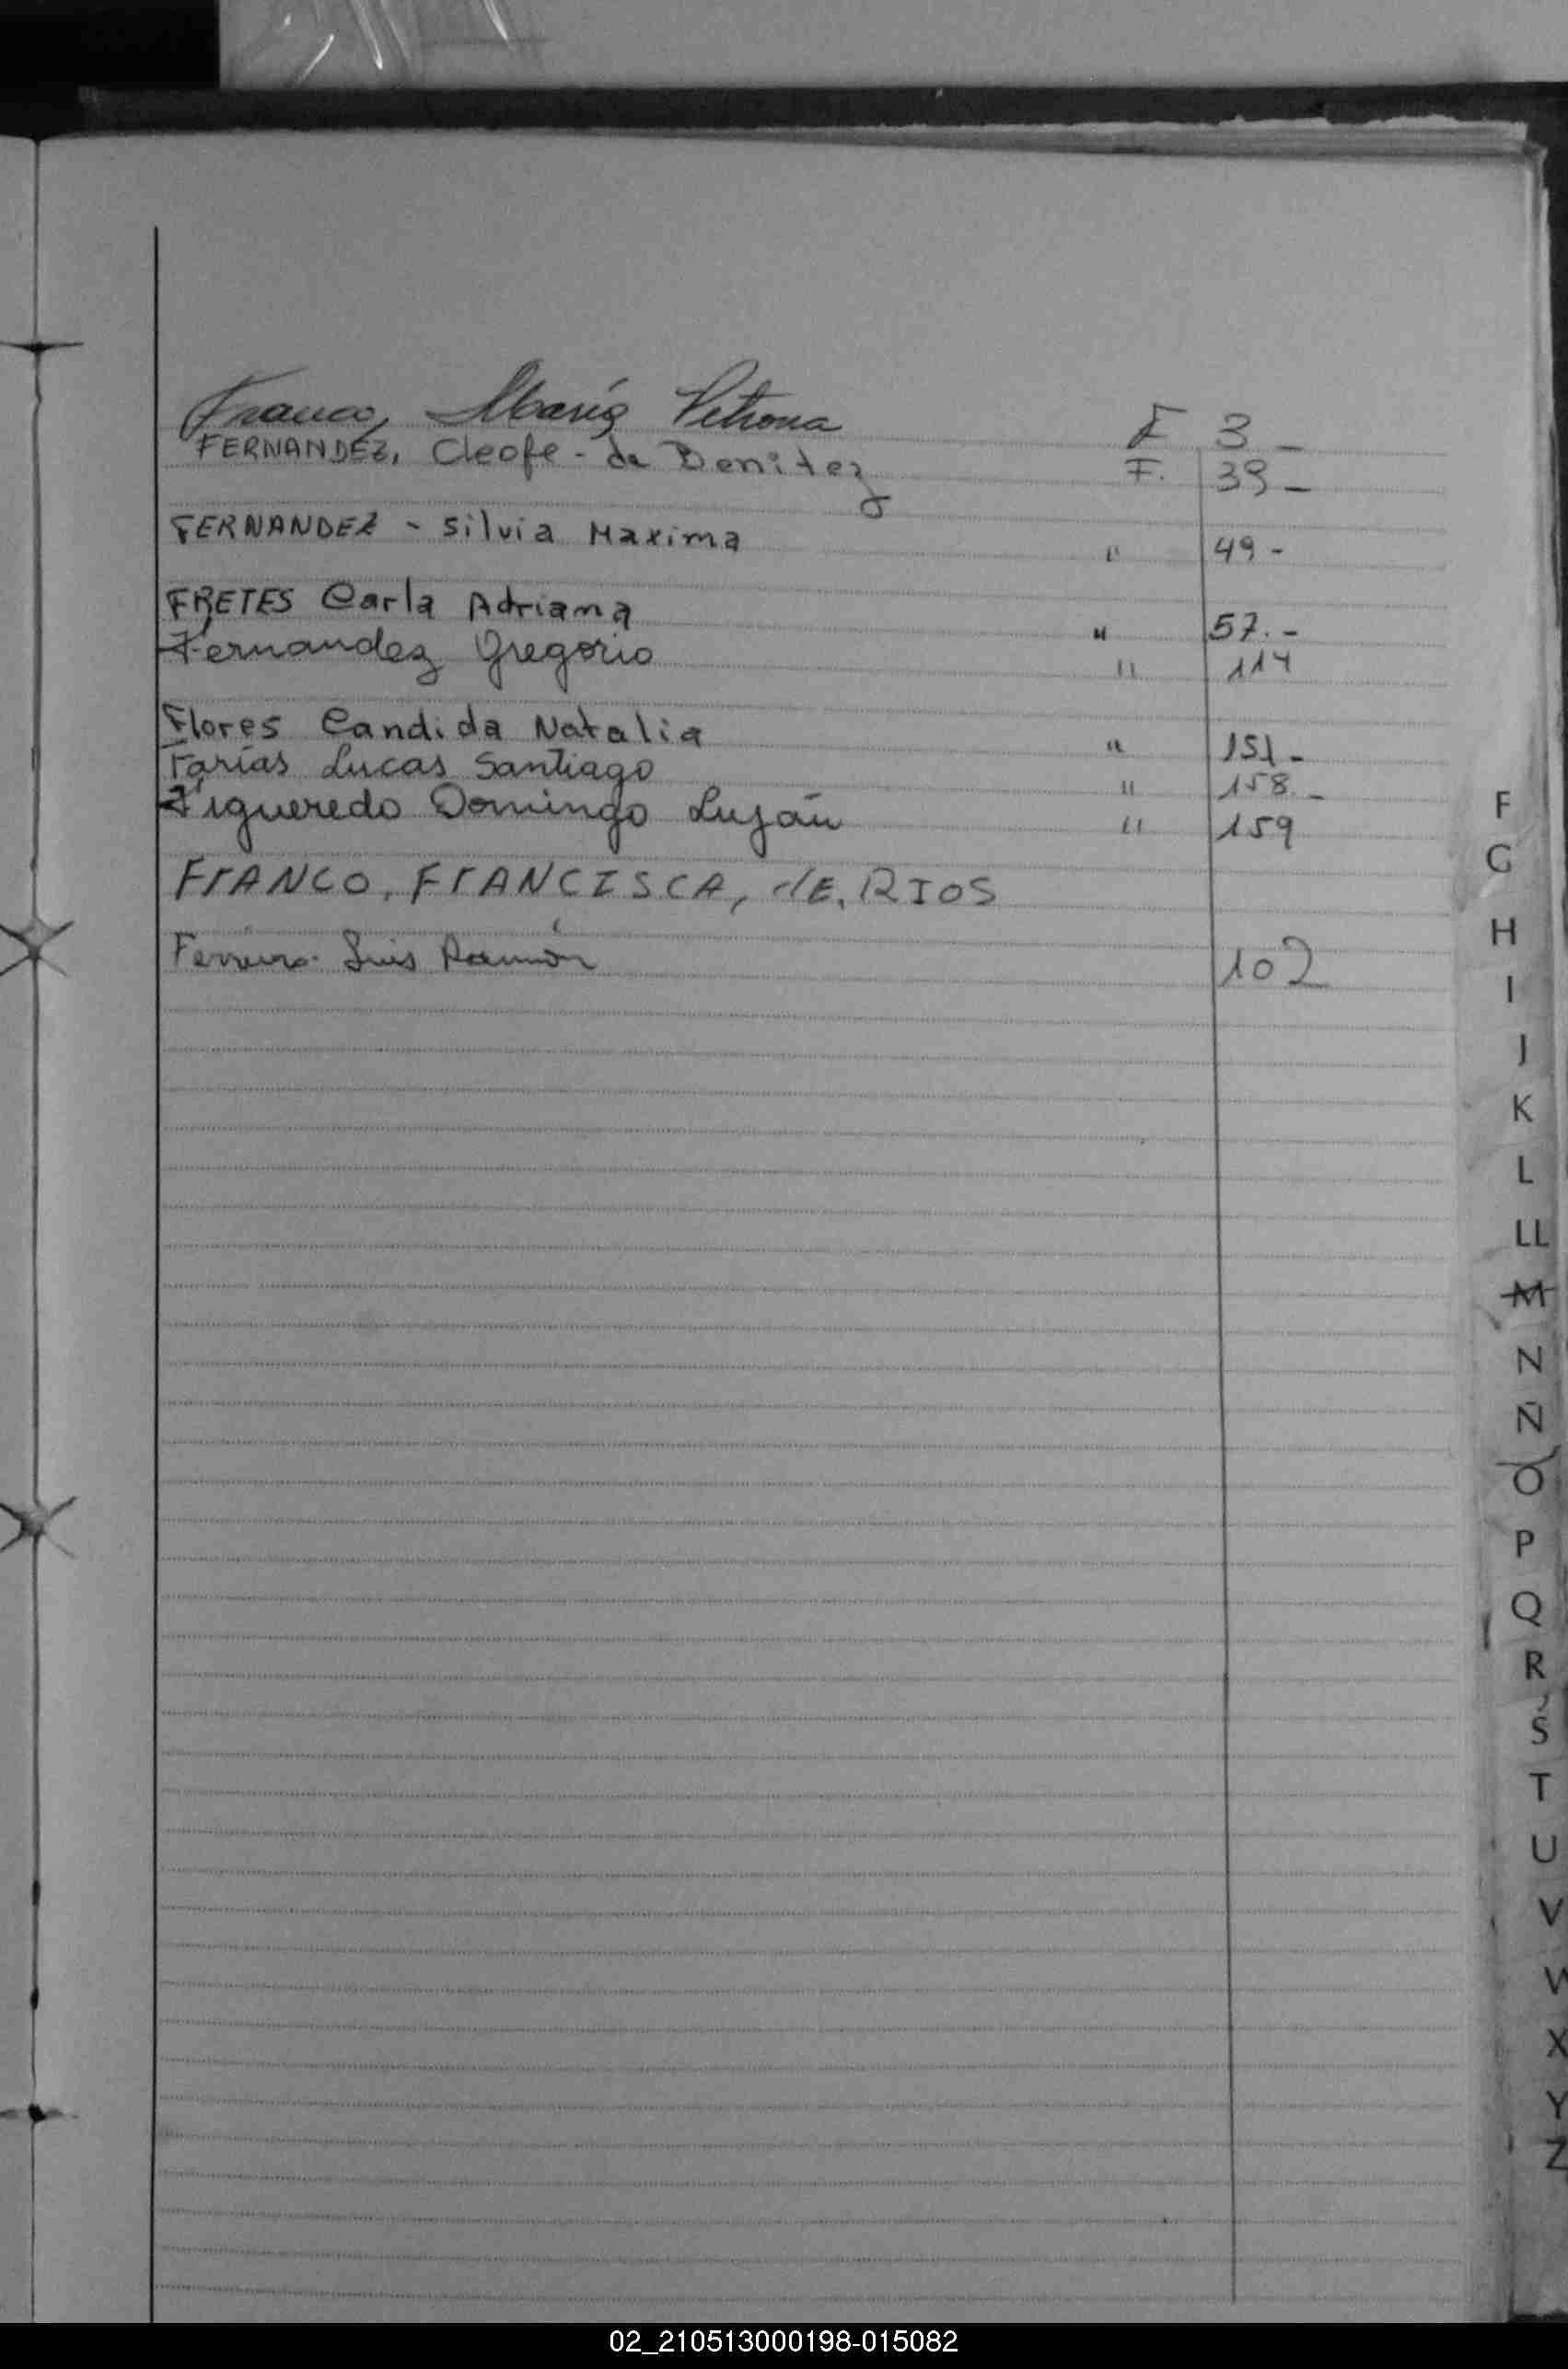 Franco, María Petrona F 3 -
FERNANDEZ, Cleofe - de Benitez F. 39 -
FERNANDEZ - Silvia Maxima " 49 -
FRETES Carla Adriana " 57. -
Fernandez Gregorio " 114
Flores Candida Natalia " 151 -
Farías Lucas Santiago " 158 -
Figueredo Domingo Luján " 159
FrANCO, FrANCISCA, dE, RIOS
Ferreira Luis Ramón 102
F
G
H
I
J
K
L
LL
M
N
Ñ
O
P
Q
R
S
T
U
V
W
X
Y
Z
02_210513000198-015082